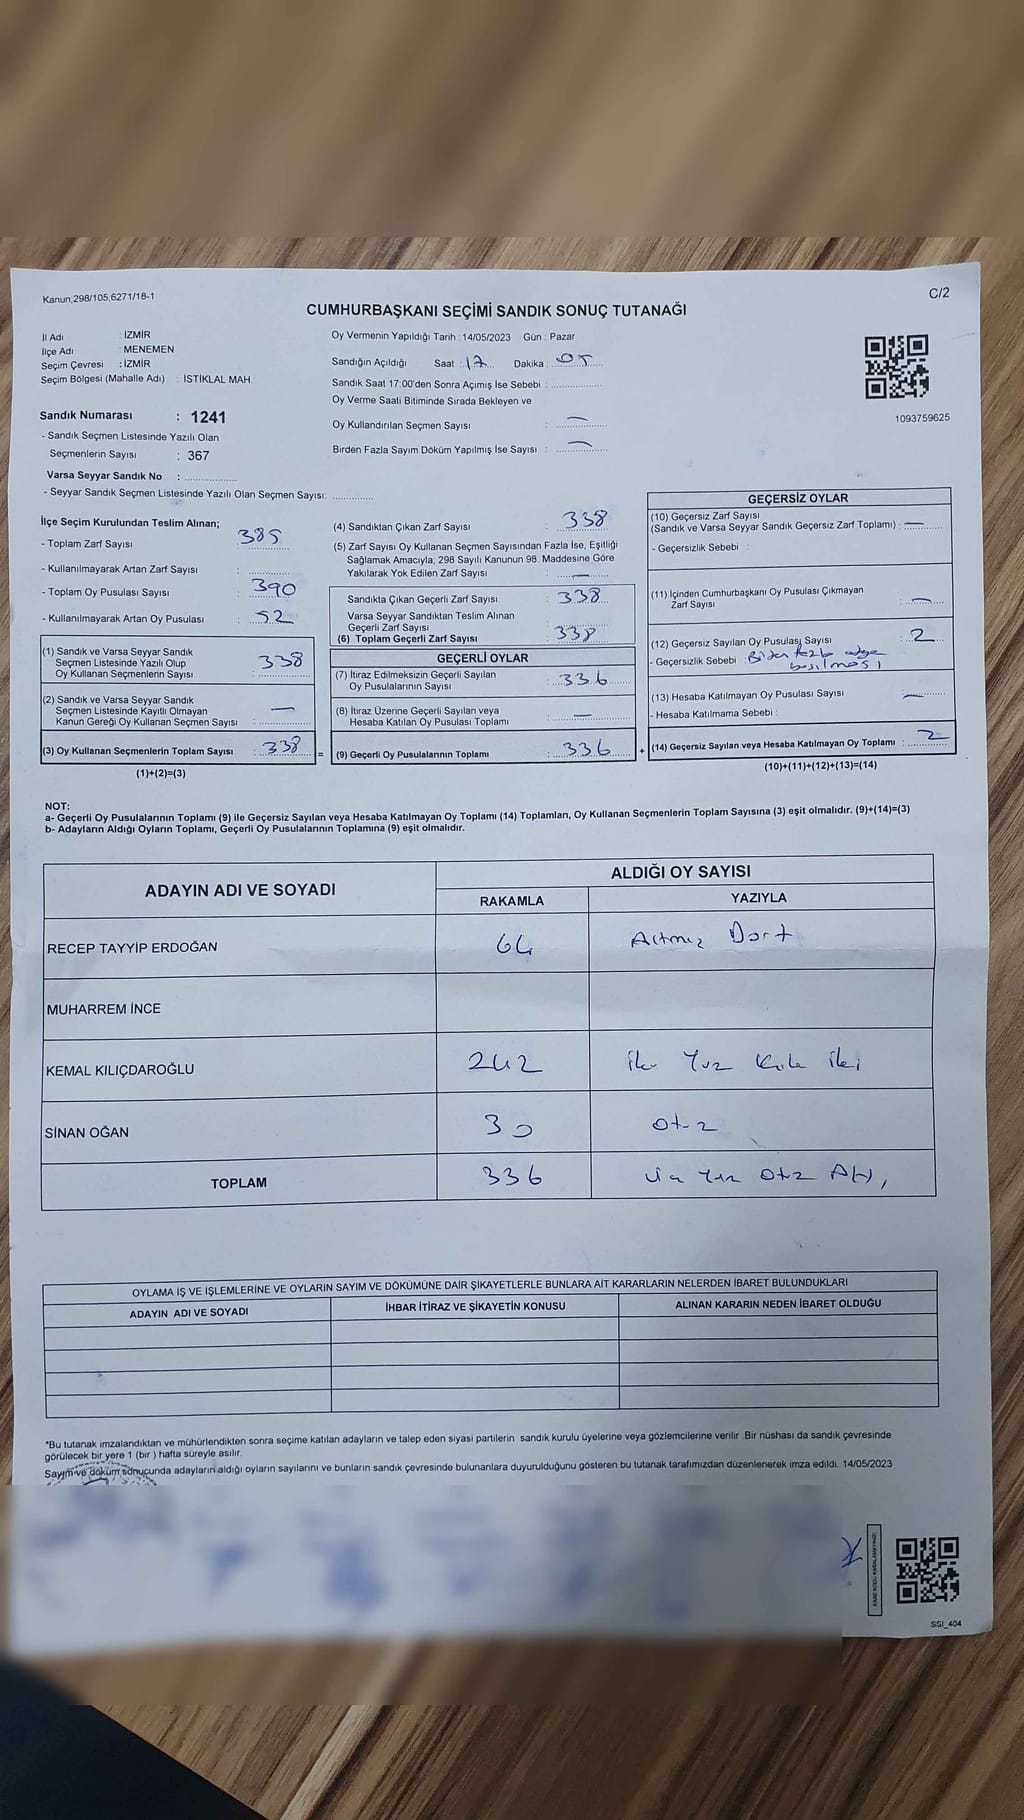 Kanun;298/105,6271/18-1
C/2
CUMHURBAŞKANI SEÇİMİ SANDIK SONUÇ TUTANAĞI
İl Adı : İZMİR
İlçe Adı : MENEMEN
Seçim Çevresi : İZMİR
Seçim Bölgesi (Mahalle Adı) : İSTİKLAL MAH.
Sandık Numarası : 1241
- Sandık Seçmen Listesinde Yazılı Olan
Seçmenlerin Sayısı : 367
Varsa Seyyar Sandık No :
- Seyyar Sandık Seçmen Listesinde Yazılı Olan Seçmen Sayısı:
Oy Vermenin Yapıldığı Tarih : 14/05/2023 Gün : Pazar
Sandığın Açıldığı Saat : 17 Dakika : 05
Sandık Saat 17:00'den Sonra Açımış İse Sebebi :
Oy Verme Saati Bitiminde Sırada Bekleyen ve
Oy Kullandırılan Seçmen Sayısı : —
Birden Fazla Sayım Döküm Yapılmış İse Sayısı : —
1093759625
İlçe Seçim Kurulundan Teslim Alınan;
- Toplam Zarf Sayısı : 385
- Kullanılmayarak Artan Zarf Sayısı :
- Toplam Oy Pusulası Sayısı : 390
- Kullanılmayarak Artan Oy Pusulası : 52
(1) Sandık ve Varsa Seyyar Sandık
Seçmen Listesinde Yazılı Olup
Oy Kullanan Seçmenlerin Sayısı : 338
(2) Sandık ve Varsa Seyyar Sandık
Seçmen Listesinde Kayıtlı Olmayan
Kanun Gereği Oy Kullanan Seçmen Sayısı : —
(3) Oy Kullanan Seçmenlerin Toplam Sayısı : 338 =
(1)+(2)=(3)
(4) Sandıktan Çıkan Zarf Sayısı : 338
(5) Zarf Sayısı Oy Kullanan Seçmen Sayısından Fazla İse, Eşitliği
Sağlamak Amacıyla; 298 Sayılı Kanunun 98. Maddesine Göre
Yakılarak Yok Edilen Zarf Sayısı : —
Sandıkta Çıkan Geçerli Zarf Sayısı : 338
Varsa Seyyar Sandıktan Teslim Alınan
Geçerli Zarf Sayısı :
(6) Toplam Geçerli Zarf Sayısı : 338
GEÇERLİ OYLAR
(7) İtiraz Edilmeksizin Geçerli Sayılan
Oy Pusulalarının Sayısı : 336
(8) İtiraz Üzerine Geçerli Sayılan veya
Hesaba Katılan Oy Pusulası Toplamı : —
(9) Geçerli Oy Pusulalarının Toplamı : 336 +
GEÇERSİZ OYLAR
(10) Geçersiz Zarf Sayısı
(Sandık ve Varsa Seyyar Sandık Geçersiz Zarf Toplamı) : —
- Geçersizlik Sebebi :
(11) İçinden Cumhurbaşkanı Oy Pusulası Çıkmayan
Zarf Sayısı : —
(12) Geçersiz Sayılan Oy Pusulası Sayısı : 2
- Geçersizlik Sebebi : Birden fazla
basılması
(13) Hesaba Katılmayan Oy Pusulası Sayısı : —
- Hesaba Katılmama Sebebi :
(14) Geçersiz Sayılan veya Hesaba Katılmayan Oy Toplamı : 2
(10)+(11)+(12)+(13)=(14)
NOT:
a- Geçerli Oy Pusulalarının Toplamı (9) ile Geçersiz Sayılan veya Hesaba Katılmayan Oy Toplamı (14) Toplamları, Oy Kullanan Seçmenlerin Toplam Sayısına (3) eşit olmalıdır. (9)+(14)=(3)
b- Adayların Aldığı Oyların Toplamı, Geçerli Oy Pusulalarının Toplamına (9) eşit olmalıdır.
ADAYIN ADI VE SOYADI
ALDIĞI OY SAYISI
RAKAMLA YAZIYLA
RECEP TAYYİP ERDOĞAN 64 Altmış Dört
MUHARREM İNCE
KEMAL KILIÇDAROĞLU 242 İki Yüz Kırk İki
SİNAN OĞAN 30 Otuz
TOPLAM 336 Üç Yüz Otuz Altı
OYLAMA İŞ VE İŞLEMLERİNE VE OYLARIN SAYIM VE DÖKÜMÜNE DAİR ŞİKAYETLERLE BUNLARA AİT KARARLARIN NELERDEN İBARET BULUNDUKLARI
ADAYIN ADI VE SOYADI İHBAR İTİRAZ VE ŞİKAYETİN KONUSU ALINAN KARARIN NEDEN İBARET OLDUĞU
*Bu tutanak imzalandıktan ve mühürlendikten sonra seçime katılan adayların ve talep eden siyasi partilerin sandık kurulu üyelerine veya gözlemcilerine verilir .Bir nüshası da sandık çevresinde
görülecek bir yere 1 (bir ) hafta süreyle asılır.
Sayım ve döküm sonucunda adayların aldığı oyların sayılarını ve bunların sandık çevresinde bulunanlara duyurulduğunu gösteren bu tutanak tarafımızdan düzenlenerek imza edildi. 14/05/2023
SSI_404